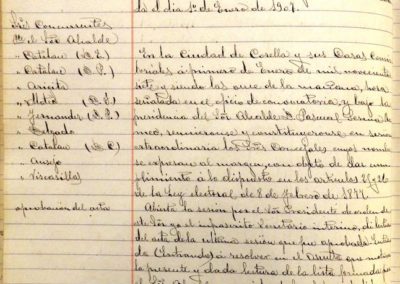 el día 1º de Enero de 1907.
Sres Concurrentes
El Sor Alcalde
" Catalan (D. L.)
" Catalan (D. P.)
" Arnejo
" Melero (D. E.)
" Fernandez (D. P.)
" Delgado
" Catalan (D. C.)
" Ausejo
" Virxarillas
aprobación del acta
En la Ciudad de Corella y sus Casas Consis
toriales á primero de Enero de mil novecientos
siete y siendo las once de la mañana, hora
señalada en el oficio de convocatoria, y bajo la
presidencia del Sor Alcalde D. Pascual
reunieronse y constituyeronse en sesión
extraordinaria los Sres Concejales cuyos nombres
se expresan al margen, con objeto de dar cum
plimiento á lo dispuesto en los artículos 25 y 26
de la Ley electoral de 8 de Febrero de 1877.
Abierta la sesión por el Sor Presidente de orden de
Sor yo el infrascrito Secretario interino, dí lectura
del acta de la última sesión que fue aprobada.
á resolver en el asunto que motiva
la presente y dada lectura de la lista formada por